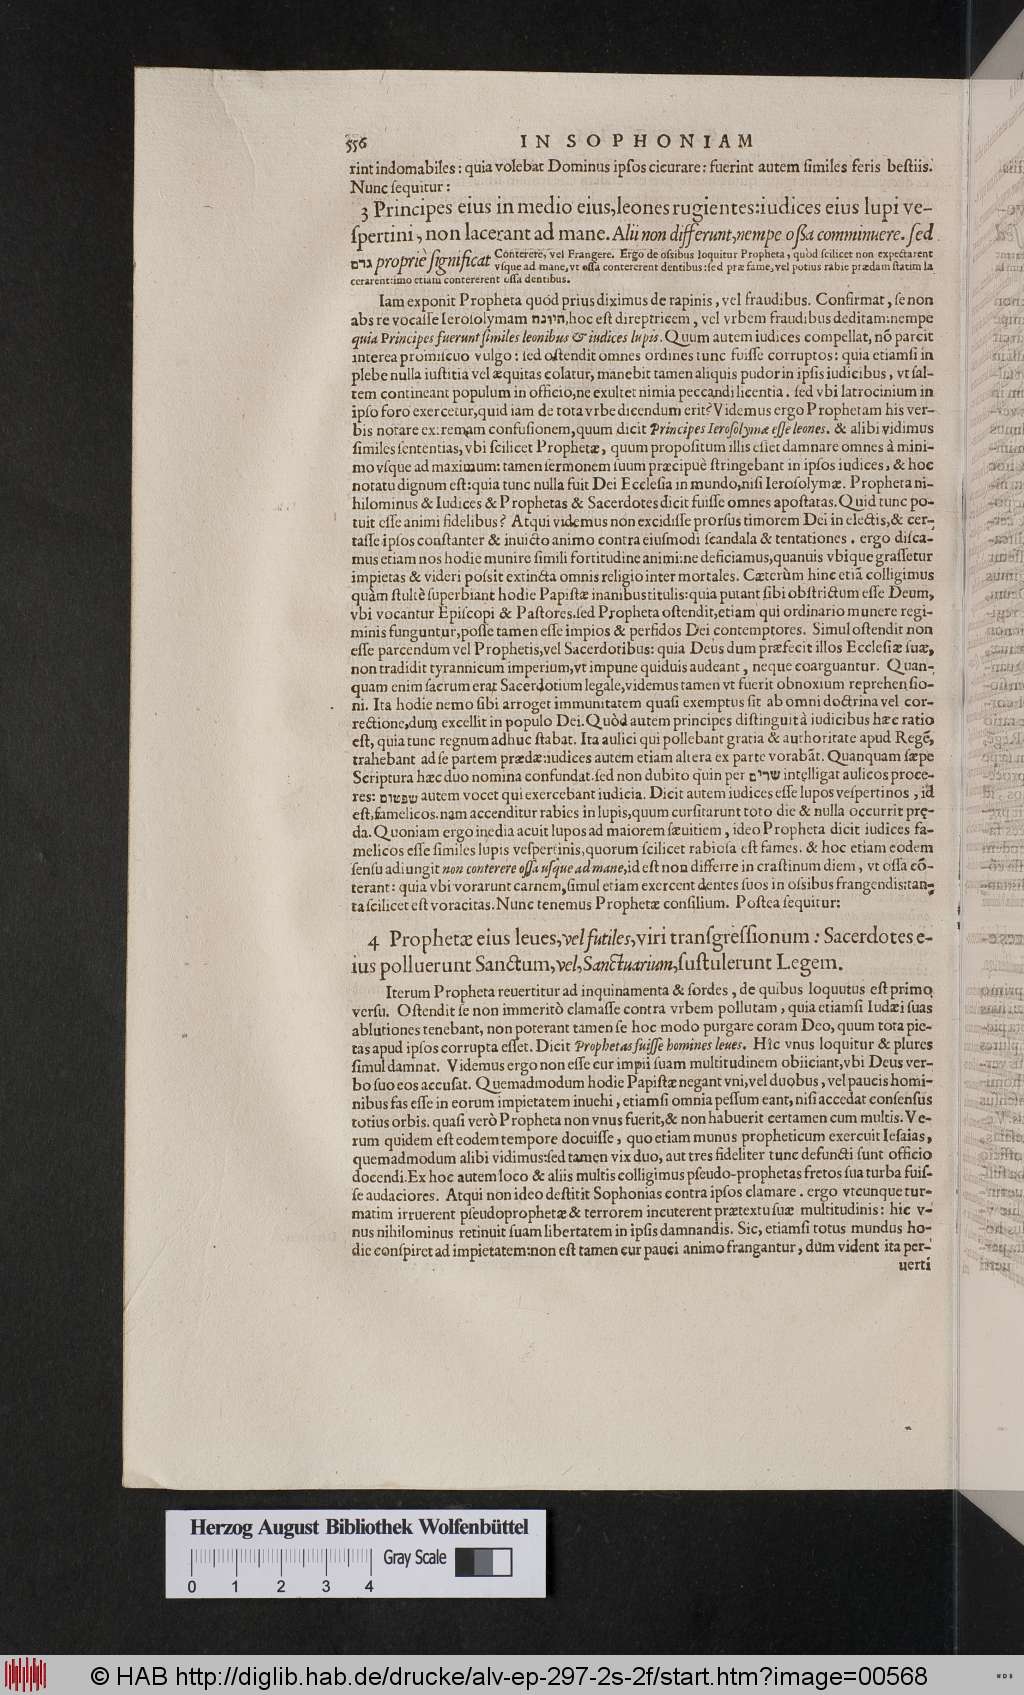 556 IN SOPHONIAM
rint indomabiles: quia volebat Dominus ipſos cicurare: fuerint autem ſimiles feris beſtiis.
Nunc ſequitur:
3 Principes eius in medio eius, leones rugientes: iudices eius lupi ve-
ſpertini, non lacerant ad mane. Alii non differunt, nempe oſſa comminuere. ſed
גרם propriè ſignificat Conterere, vel Frangere. Ergo de oſsibus loquitur Propheta, quòd ſcilicet non expectarent
vſque ad mane, vt oſſa contererent dentibus: ſed præ fame, vel potius rabie prædam ſtatim la
cerarent: imo etiam contererent oſſa dentibus.
Iam exponit Propheta quod prius diximus de rapinis, vel fraudibus. Confirmat, ſe non
abs re vocaſſe Ieroſolymam היונה, hoc eſt direptricem, vel vrbem fraudibus deditam: nempe
quia Principes fuerunt ſimiles leonibus & iudices lupis. Quum autem iudices compellat, nō parcit
interea promiſcuo vulgo: ſed oſtendit omnes ordines tunc fuiſſe corruptos: quia etiamſi in
plebe nulla iuſtitia vel æquitas colatur, manebit tamen aliquis pudor in ipſis iudicibus, vt ſal-
tem contineant populum in officio, ne exultet nimia peccandi licentia. ſed vbi latrocinium in
ipſo foro exercetur, quid iam de tota vrbe dicendum erit? Videmus ergo Prophetam his ver-
bis notare extremam confuſionem, quum dicit Principes Ieroſolymæ eſſe leones. & alibi vidimus
ſimiles ſententias, vbi ſcilicet Prophetæ, quum propoſitum illis eſſet damnare omnes à mini-
mo vſque ad maximum: tamen ſermonem ſuum præcipuè ſtringebant in ipſos iudices, & hoc
notatu dignum eſt: quia tunc nulla fuit Dei Eccleſia in mundo, niſi Ieroſolymæ. Propheta ni-
hilominus & Iudices & Prophetas & Sacerdotes dicit fuiſſe omnes apoſtatas. Quid tunc po-
tuit eſſe animi fidelibus? Atqui videmus non excidiſſe prorſus timorem Dei in electis, & cer-
taſſe ipſos conſtanter & inuicto animo contra eiuſmodi ſcandala & tentationes. ergo diſca-
mus etiam nos hodie munire ſimili fortitudine animi: ne deficiamus, quanuis vbique graſſetur
impietas & videri poſsit extincta omnis religio inter mortales. Cæterùm hinc etiā colligimus
quàm ſtultè ſuperbiant hodie Papiſtæ inanibus titulis: quia putant ſibi obſtrictum eſſe Deum,
vbi vocantur Epiſcopi & Paſtores. ſed Propheta oſtendit, etiam qui ordinario munere regi-
minis funguntur, poſſe tamen eſſe impios & perfidos Dei contemptores. Simul oſtendit non
eſſe parcendum vel Prophetis, vel Sacerdotibus: quia Deus dum præfecit illos Eccleſiæ ſuæ,
non tradidit tyrannicum imperium, vt impune quiduis audeant, neque coarguantur. Quan-
quam enim ſacrum erat Sacerdotium legale, videmus tamen vt fuerit obnoxium reprehenſio-
ni. Ita hodie nemo ſibi arroget immunitatem quaſi exemptus ſit ab omni doctrina vel cor-
rectione, dum excellit in populo Dei. Quòd autem principes diſtinguit à iudicibus hæc ratio
eſt, quia tunc regnum adhuc ſtabat. Ita aulici qui pollebant gratia & authoritate apud Regē,
trahebant ad ſe partem prædæ: iudices autem etiam altera ex parte vorabāt. Quanquam ſæpe
Scriptura hæc duo nomina confundat. ſed non dubito quin per שרים intelligat aulicos proce-
res: שפטים autem vocet qui exercebant iudicia. Dicit autem iudices eſſe lupos veſpertinos, id
eſt, famelicos. nam accenditur rabies in lupis, quum curſitarunt toto die & nulla occurrit prę-
da. Quoniam ergo inedia acuit lupos ad maiorem ſæuitiem, ideo Propheta dicit iudices fa-
melicos eſſe ſimiles lupis veſpertinis, quorum ſcilicet rabioſa eſt fames. & hoc etiam eodem
ſenſu adiungit non conterere oſſa uſque ad mane, id eſt non differre in craſtinum diem, vt oſſa cō-
terant: quia vbi vorarunt carnem, ſimul etiam exercent dentes ſuos in oſsibus frangendis: tan-
ta ſcilicet eſt voracitas. Nunc tenemus Prophetæ conſilium. Poſtea ſequitur:
4 Prophetæ eius leues, vel futiles, viri tranſgreſſionum: Sacerdotes e-
ius polluerunt Sanctum, vel, Sanctuarium, ſuſtulerunt Legem.
Iterum Propheta reuertitur ad inquinamenta & ſordes, de quibus loquutus eſt primo
verſu. Oſtendit ſe non immeritò clamaſſe contra vrbem pollutam, quia etiamſi Iudæi ſuas
ablutiones tenebant, non poterant tamen ſe hoc modo purgare coram Deo, quum tota pie-
tas apud ipſos corrupta eſſet. Dicit Prophetas fuiſſe homines leues. Hîc vnus loquitur & plures
ſimul damnat. Videmus ergo non eſſe cur impii ſuam multitudinem obiiciant, vbi Deus ver-
bo ſuo eos accuſat. Quemadmodum hodie Papiſtæ negant vni, vel duobus, vel paucis homi-
nibus fas eſſe in eorum impietatem inuehi, etiamſi omnia peſſum eant, niſi accedat conſenſus
totius orbis. quaſi verò Propheta non vnus fuerit, & non habuerit certamen cum multis. Ve-
rum quidem eſt eodem tempore docuiſſe, quo etiam munus propheticum exercuit Ieſaias,
quemadmodum alibi vidimus: ſed tamen vix duo, aut tres fideliter tunc defuncti ſunt officio
docendi. Ex hoc autem loco & aliis multis colligimus pſeudo-prophetas fretos ſua turba fuiſ-
ſe audaciores. Atqui non ideo deſtitit Sophonias contra ipſos clamare. ergo vtcunque tur-
matim irruerent pſeudoprophetæ & terrorem incuterent prætextu ſuæ multitudinis: hic v-
nus nihilominus retinuit ſuam libertatem in ipſis damnandis. Sic, etiamſi totus mundus ho-
die conſpiret ad impietatem: non eſt tamen cur pauci animo frangantur, dum vident ita per-
uerti
Herzog August Bibliothek Wolfenbüttel
Gray Scale
0 1 2 3 4
© HAB http://diglib.hab.de/drucke/alv-ep-297-2s-2f/start.htm?image=00568